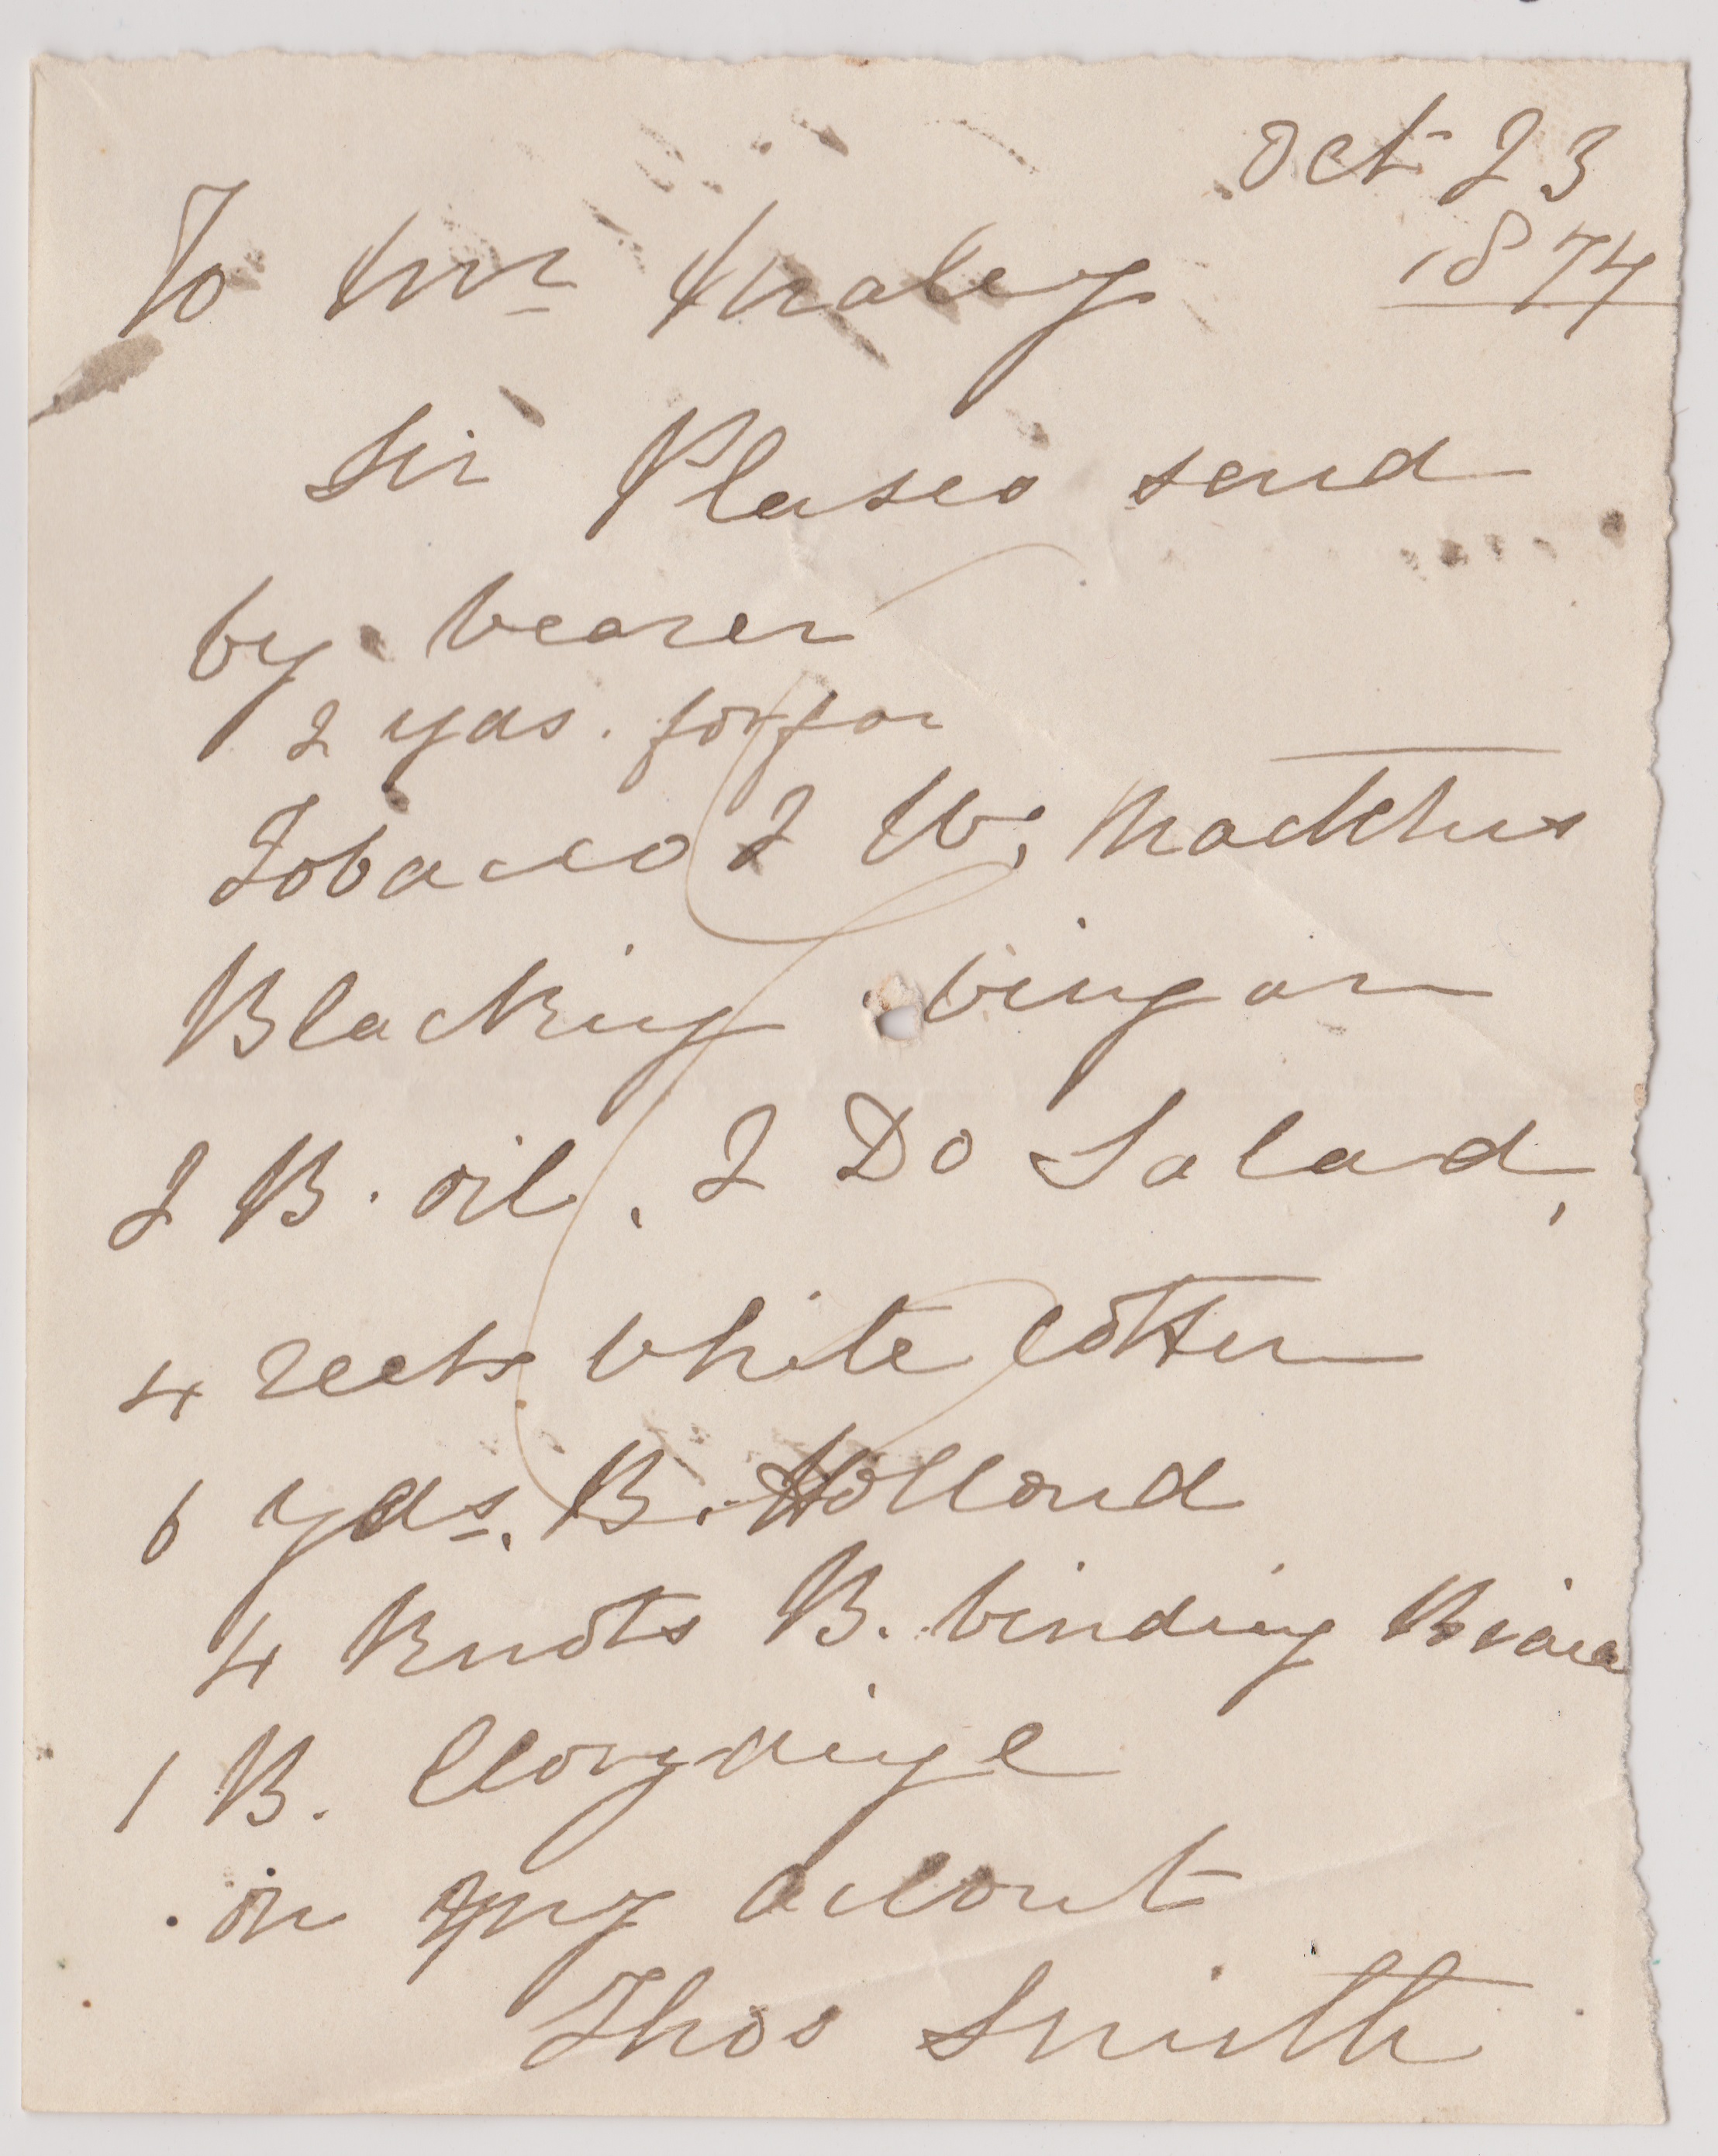 Oct 23
1874
To Mr Maley
Sir Plases send
by bearer
2 yds. forfar
Tobacco 2 W. Matthus
Blacking vingar
2 B. oil, 2 Do Salad,
4 reels white Cotten
6 yds. B. Holland
4 Knots B. binding
1 B.
on my acount
Thos Smith